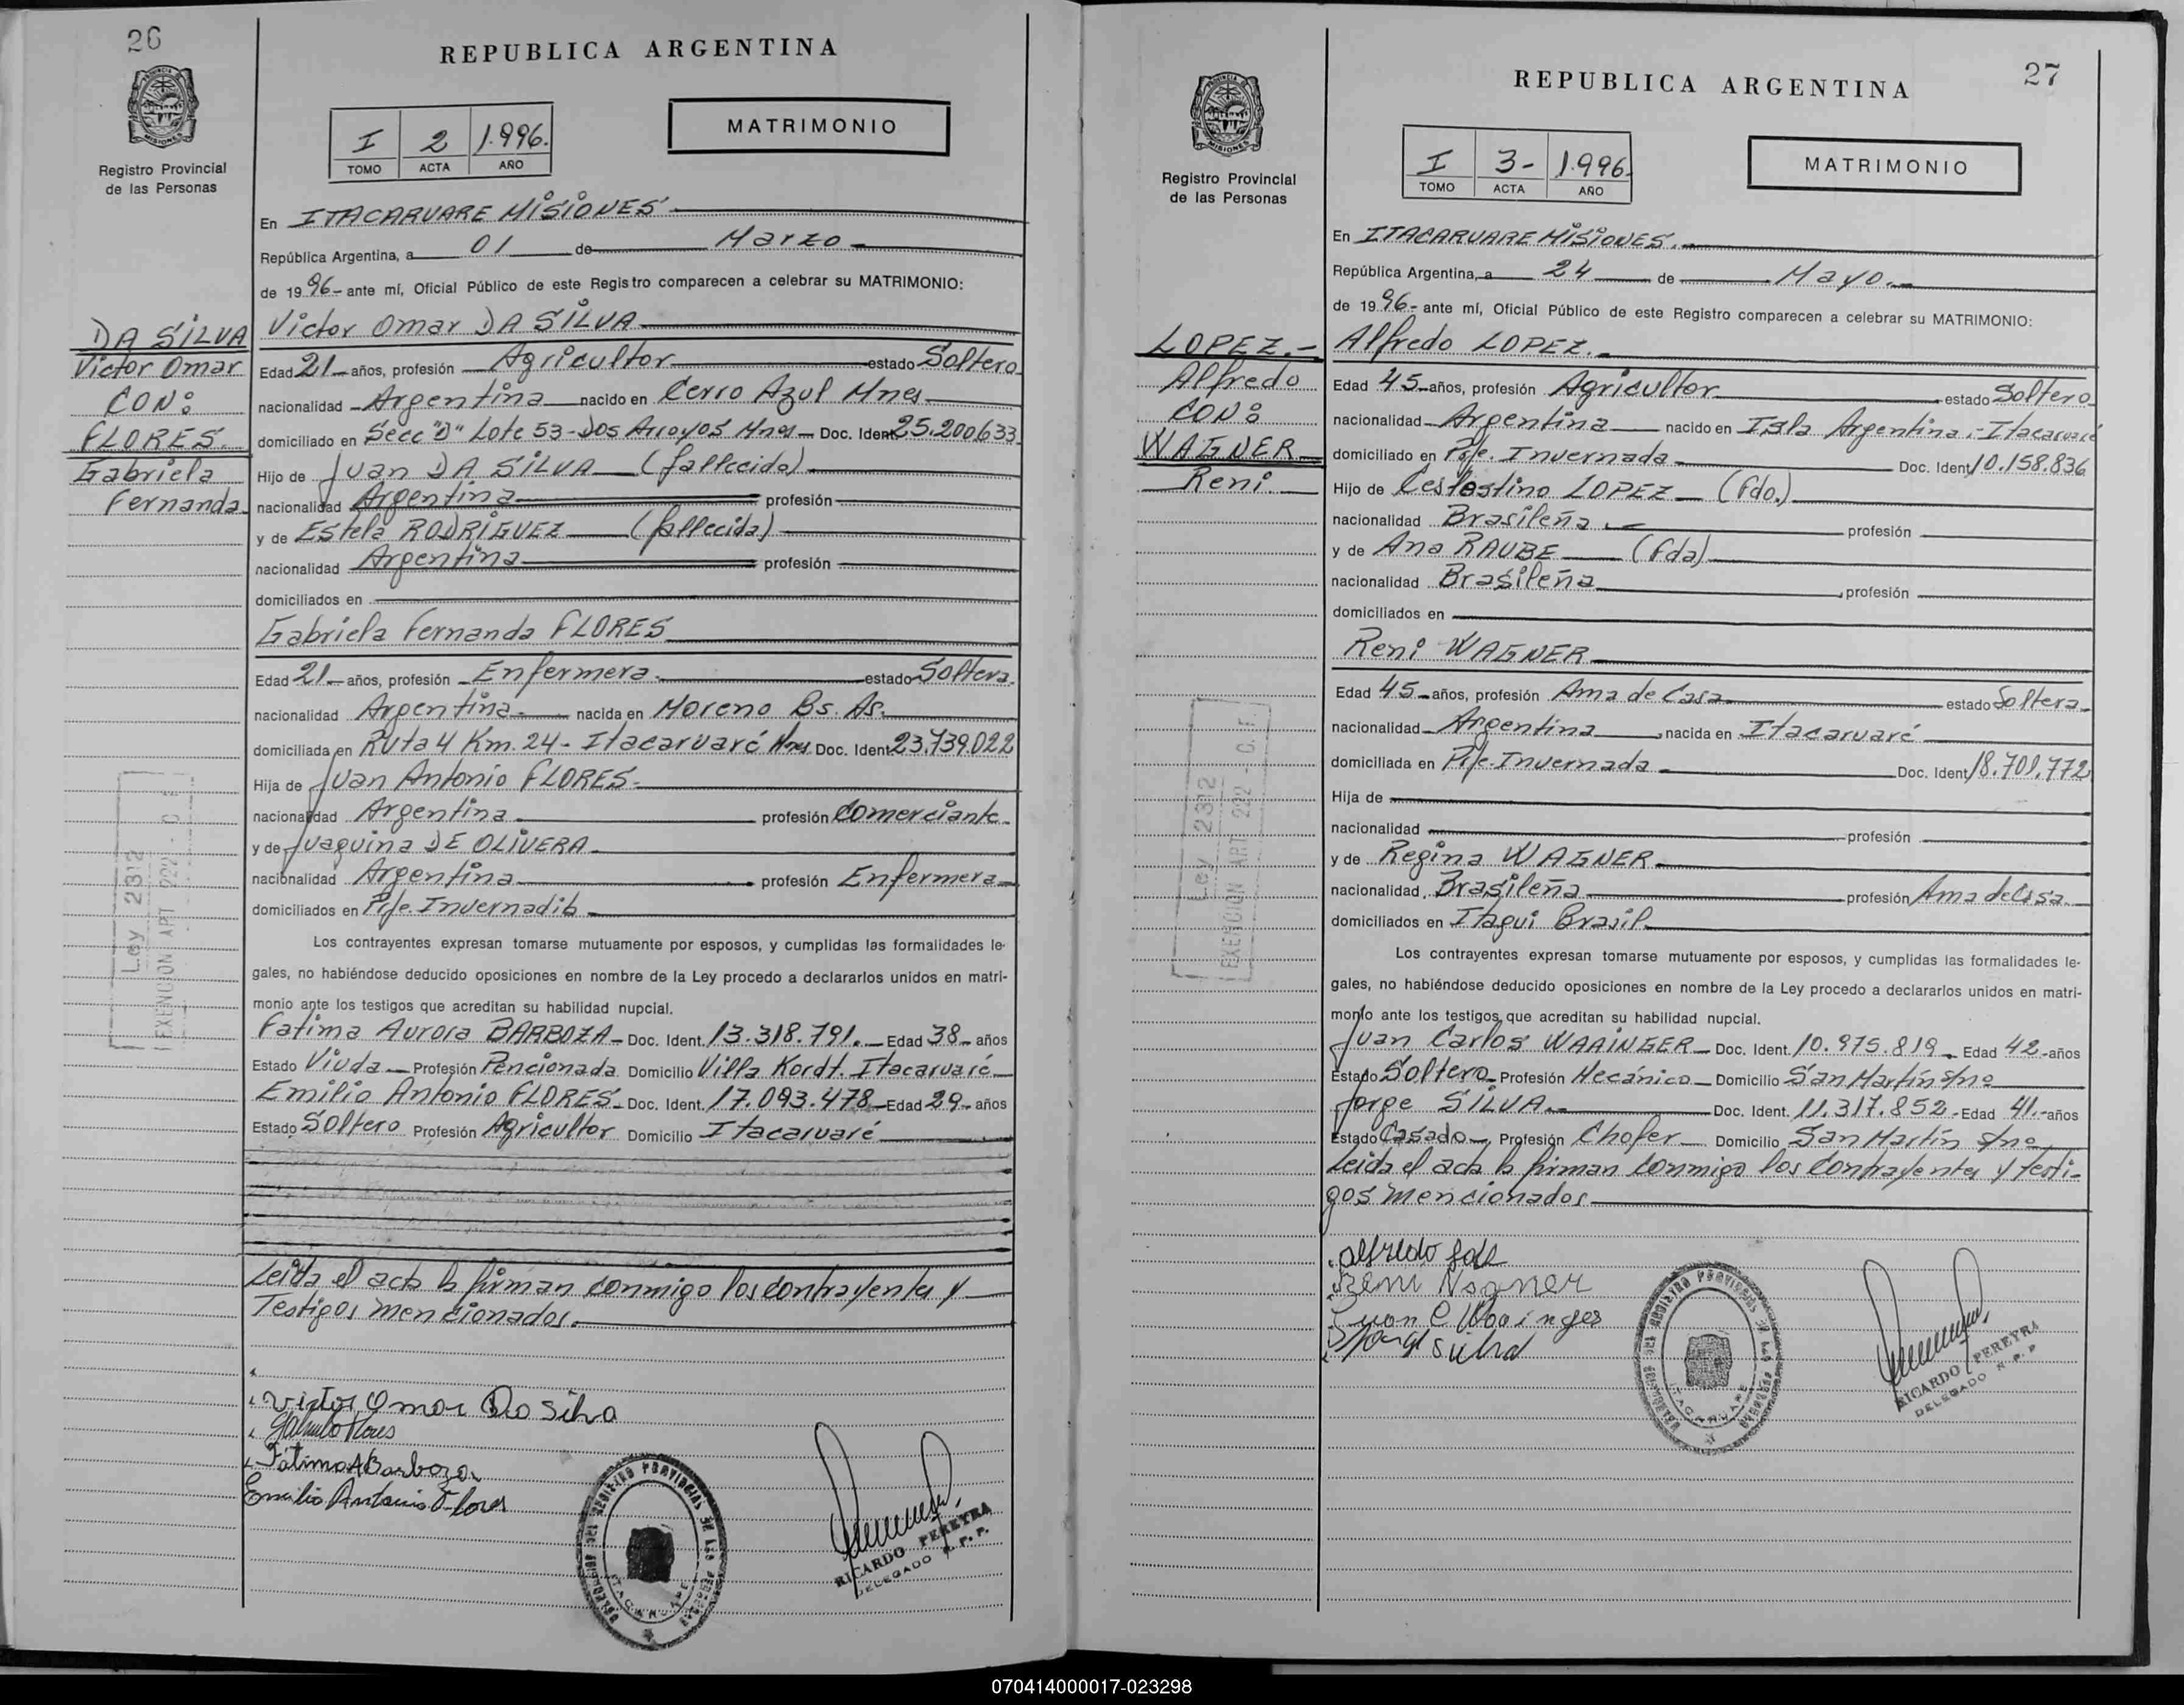 26
REPUBLICA ARGENTINA
PROVINCIA DE MISIONES
Registro Provincial
de las Personas
I 2 1.996.
TOMO ACTA AÑO
MATRIMONIO
En ITACARUARE MISIONES
República Argentina, a 01 de Marzo
de 1996 ante mí, Oficial Público de este Registro comparecen a celebrar su MATRIMONIO:
DA SILVA
Victor Omar
CON:
FLORES.
Gabriela
Fernanda
Victor Omar DA SILVA
Edad 21 años, profesión Agricultor estado Soltero
nacionalidad Argentina nacido en Cerro Azul Mnes
domiciliado en Secc "D" Lote 53-Dos Arroyos Mnes Doc. Ident. 25.200.633
Hijo de Juan DA SILVA (fallecido)
nacionalidad Argentina profesión
y de Estela RODRIGUEZ (fallecida)
nacionalidad Argentina profesión
domiciliados en
Gabriela Fernanda FLORES
Edad 21 años, profesión Enfermera. estado Soltera.
nacionalidad Argentina. nacida en Moreno Bs. As.
domiciliada en Ruta 4 Km. 24- Itacaruaré Mnes Doc. Ident. 23.739.022
Hija de Juan Antonio FLORES
nacionalidad Argentina profesión Comerciante
y de Juaquina DE OLIVERA
nacionalidad Argentina profesión Enfermera
domiciliados en Pje.
Los contrayentes expresan tomarse mutuamente por esposos, y cumplidas las formalidades le-
gales, no habiéndose deducido oposiciones en nombre de la Ley procedo a declararlos unidos en matri-
monio ante los testigos que acreditan su habilidad nupcial.
Fatima Aurora BARBOZA Doc. Ident. 13.318.791. Edad 38 años
Estado Viuda Profesión Pencionada Domicilio Villa Kordt. Itacaruaré
Emilio Antonio FLORES Doc. Ident. 17.093.478 Edad 29 años
Estado Soltero Profesión Agricultor Domicilio Itacaruaré
Leida el acta la firman conmigo los contrayentes y
Testigos mencionados.
Victor Omar Da Silva
Fátima A Barboza
Emilio Antonio Flores
Ley 2312
EXENCION ART 222 - C. F.
ITACARUARE
RICARDO PEREYRA
DELEGADO R. P. P.
27
REPUBLICA ARGENTINA
PROVINCIA DE MISIONES
Registro Provincial
de las Personas
I 3- 1.996.
TOMO ACTA AÑO
MATRIMONIO
En ITACARUARE MISIONES.
República Argentina, a 24 de Mayo.
de 1996- ante mí, Oficial Público de este Registro comparecen a celebrar su MATRIMONIO:
LOPEZ.-
Alfredo
CON:
WAGNER
Reni.
Alfredo LOPEZ.
Edad 45 años, profesión Agricultor estado Soltero
nacionalidad Argentina nacido en Isla Argentina - Itacaruaré
domiciliado en Pje. Invernada Doc. Ident. 10.158.836
Hijo de LOPEZ (fdo.)
nacionalidad Brasileña profesión
y de Ana RAUBE (fda)
nacionalidad Brasileña profesión
domiciliados en
Reni WAGNER
Edad 45 años, profesión Ama de Casa estado Soltera
nacionalidad Argentina nacida en Itacaruaré
domiciliada en Pje. Invernada Doc. Ident. 18.701.772
Hija de
nacionalidad profesión
y de Regina WAGNER
nacionalidad Brasileña profesión Ama de Casa
domiciliados en Itaqui Brasil
Los contrayentes expresan tomarse mutuamente por esposos, y cumplidas las formalidades le-
gales, no habiéndose deducido oposiciones en nombre de la Ley procedo a declararlos unidos en matri-
monio ante los testigos que acreditan su habilidad nupcial.
Juan Carlos WAAINGER Doc. Ident. 10.975.819 Edad 42 años
Estado Soltero Profesión Mecánico Domicilio San Martín s/nº
Jorge SILVA. Doc. Ident. 11.317.852 Edad 41 años
Estado Casado Profesión Chofer Domicilio San Martín s/nº
Leida el acta la firman conmigo los contrayentes y testi-
gos mencionados
Reni Wagner
Juan C Waainger
Ley 2312
EXENCION ART 222 - C. F.
ITACARUARE
RICARDO PEREYRA
DELEGADO R. P. P
070414000017-023298